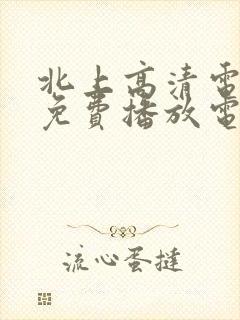 北上高清電
免費播放電
流心蛋撻